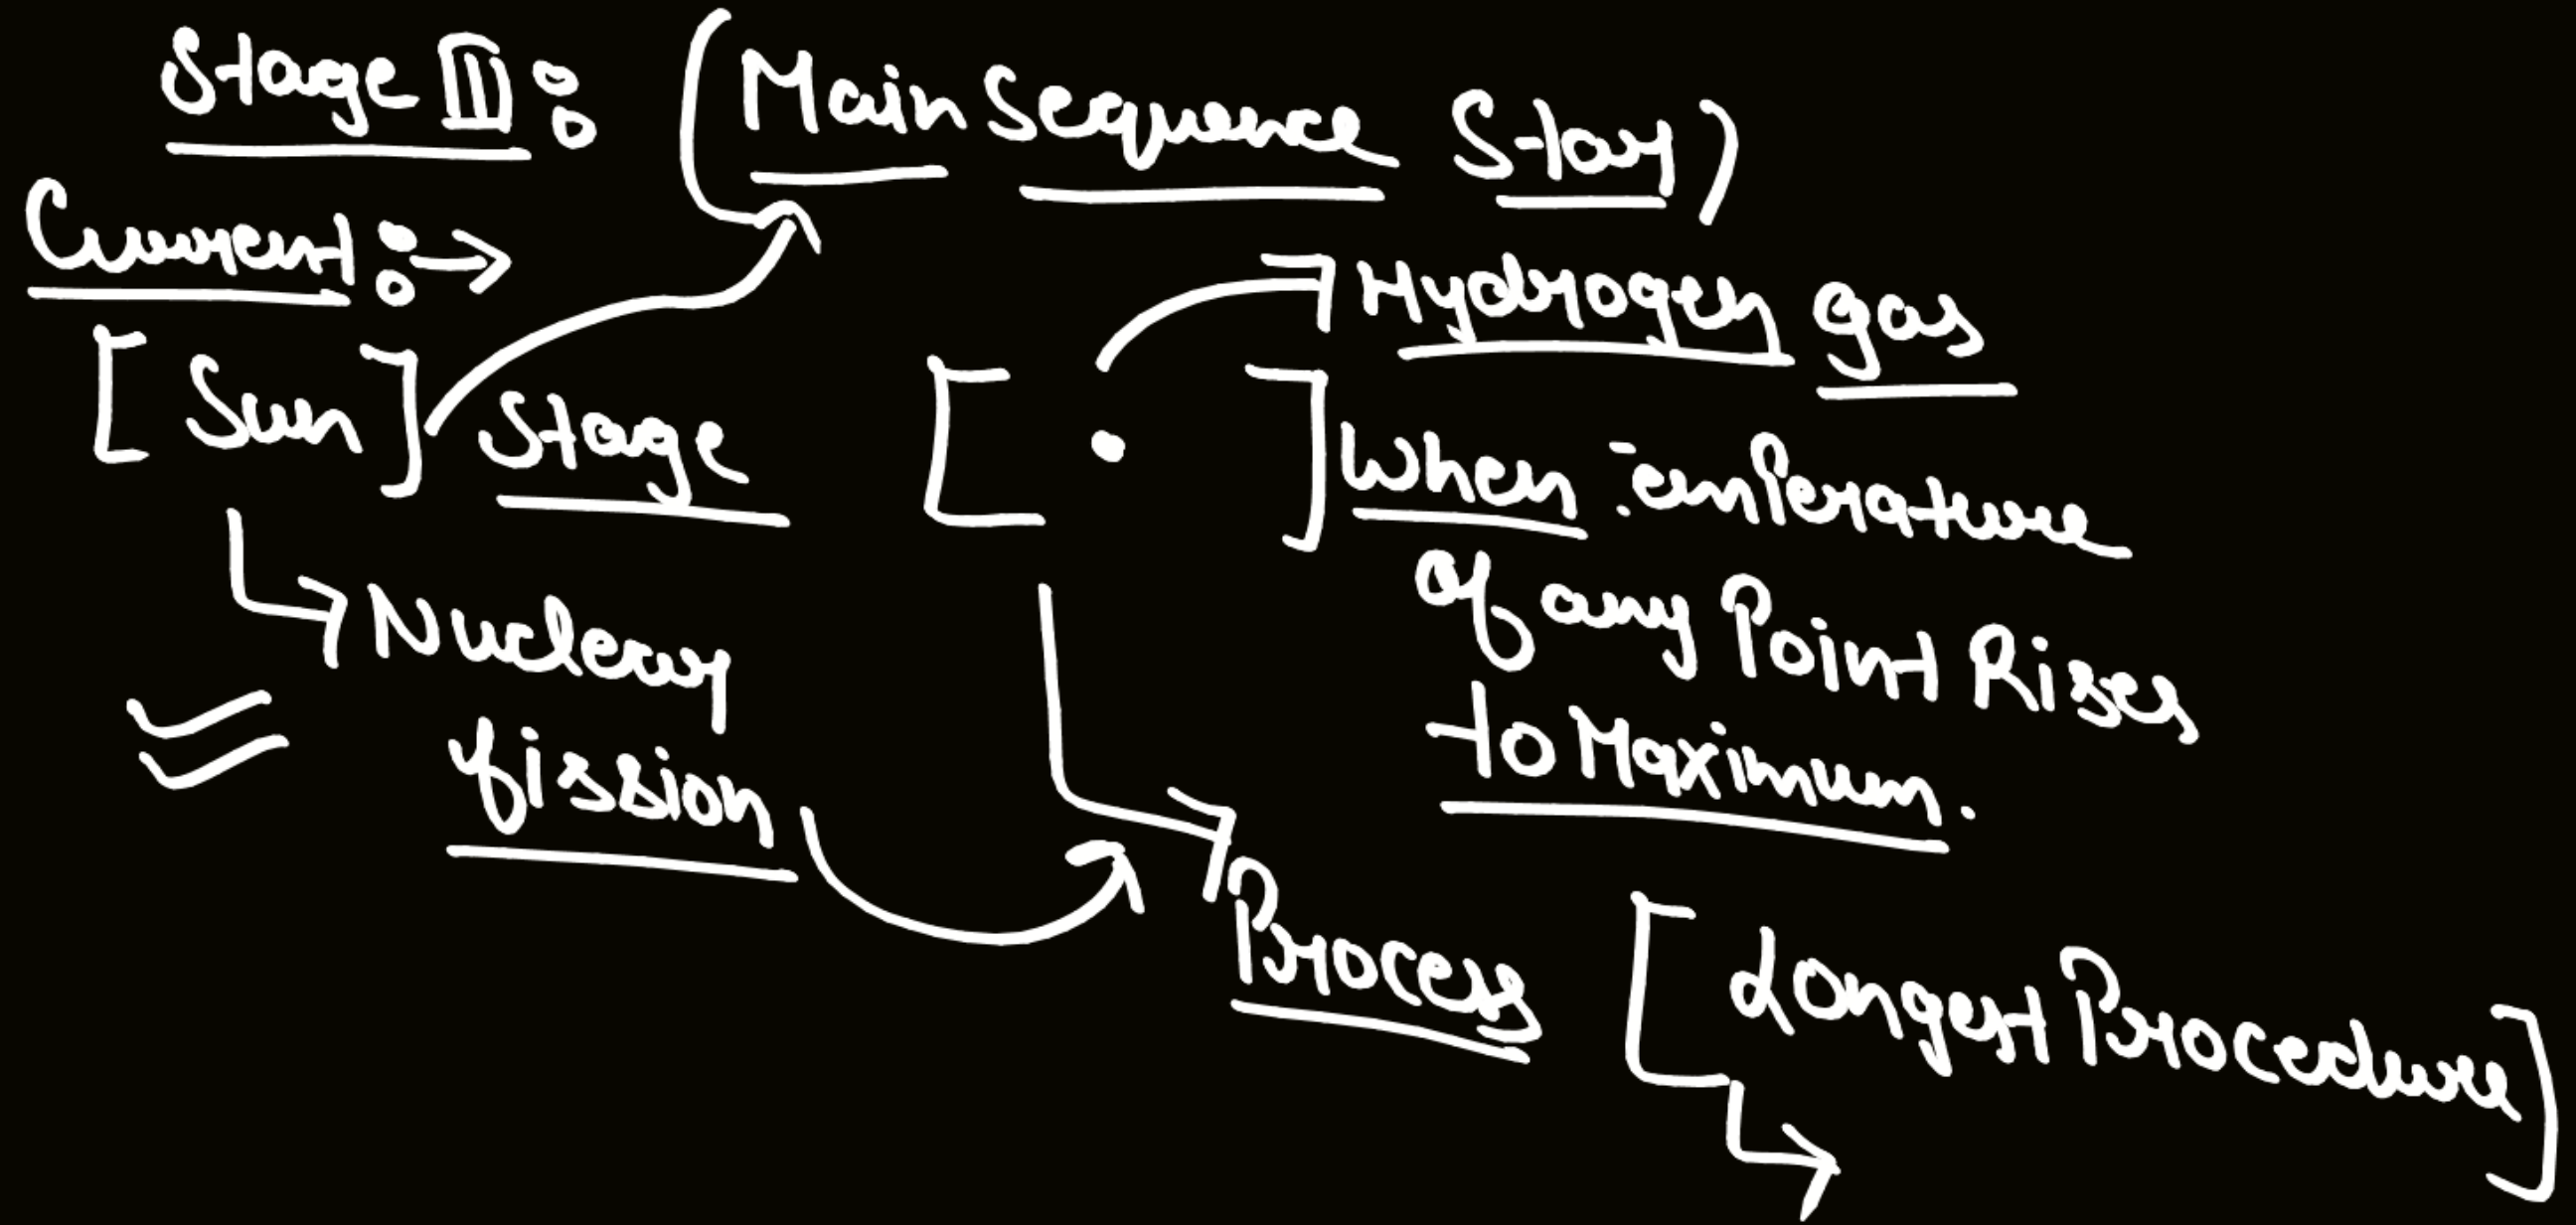 Stage III : (Main Sequence Star)
Current : →
[Sun] Stage
→ Nuclear
fission
[ · ] → Hydrogen gas
When temperature
of any Point Rises
to Maximum.
→ Process [Longest Procedure]